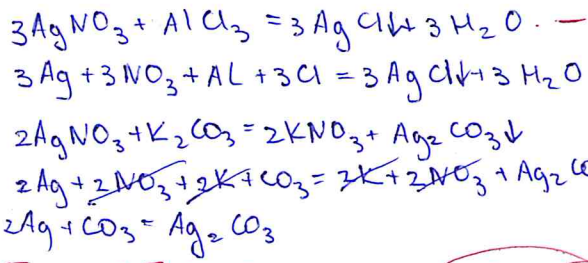 3AgNO₃ + AlCl₃ = 3AgCl↓ + 3H₂O.
3Ag + 3NO₃ + AL + 3Cl = 3AgCl↓ + 3H₂O
2AgNO₃ + K₂CO₃ = 2KNO₃ + Ag₂CO₃↓
2Ag + 2NO₃ + 2K + CO₃ = 2K + 2NO₃ + Ag₂
2Ag + CO₃ = Ag₂CO₃